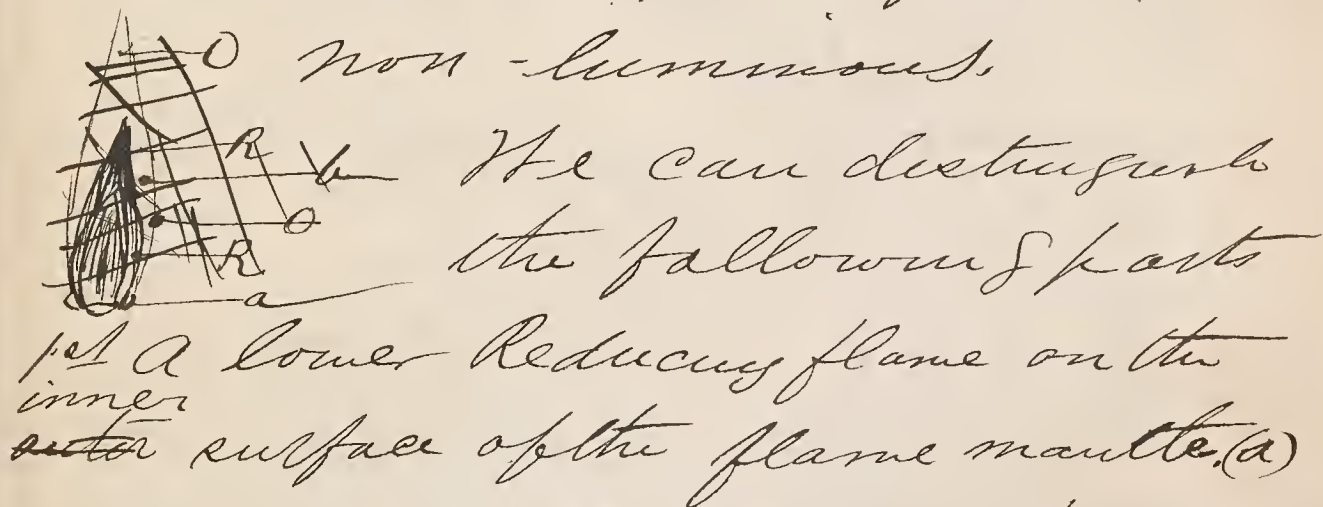 O non-luminous.
R b We can distinguish
O the following parts
R
a
1st A lower Reducing flame on the
inner
outer surface of the flame mantle.(a)